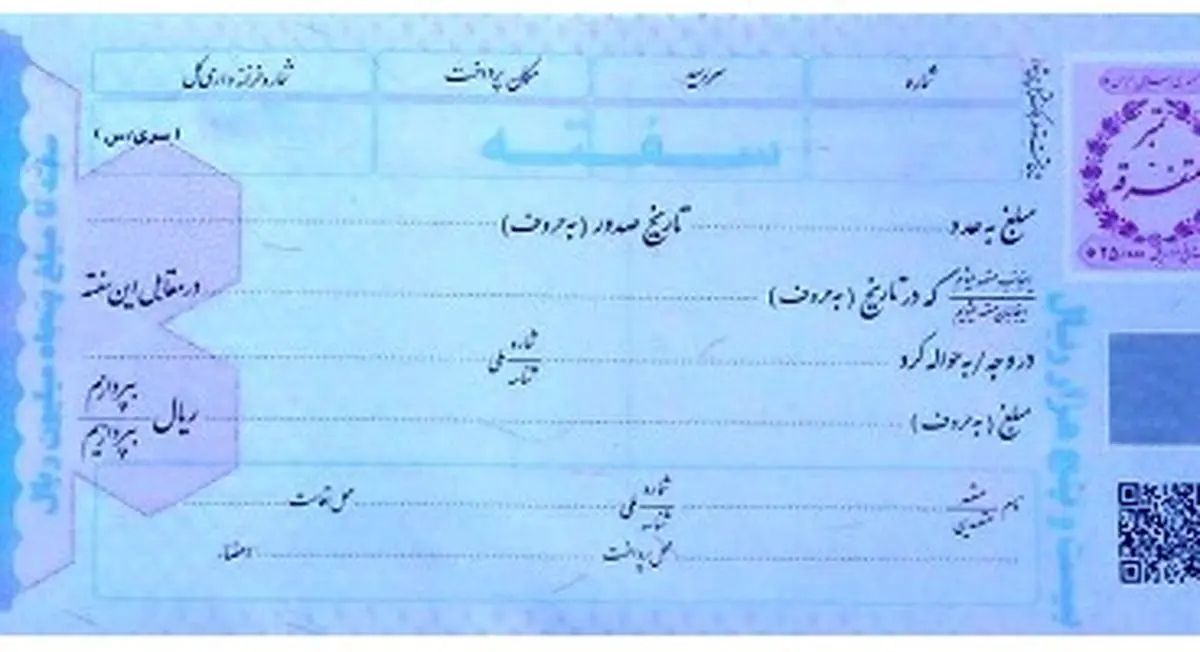 شماره سررسید مکان پرداخت شماره خزانه‌داری کل
(سری/س)
سفته
مبلغ به عدد تاریخ صدور (به حروف)
اینجانب متعهد میشوم
اینجانبان متعهد میشویم
که در تاریخ (به حروف) در مقابل این سفته
در وجه/به حواله کرد شماره شناسه ملی
مبلغ (به حروف) ریال بپردازم
بپردازیم
نام متعهد
متعهدین
شماره شناسه ملی محل اقامت
محل پرداخت امضاء
تمبر
متفرقه
سفته تا مبلغ پنجاه میلیون ریال
بیست و پنج هزار ریال